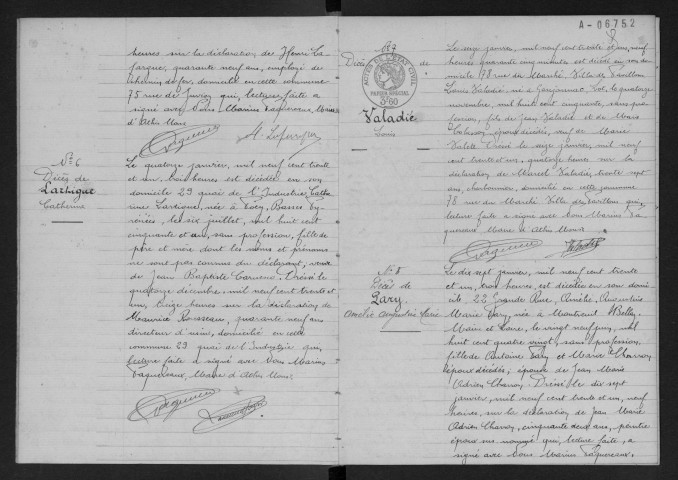 heures sur la déclaration de Henri La-
fargue, quarante neuf ans, employé de
chemin de fer, domicilié en cette commune
75 rue de Juvisy qui, lecture faite a
signé avec Nous Marius Vaquereaux, Maire
d'Athis Mons
N° 6
Décès de
Larhigue
Catherine
Le quatorze janvier, mil neuf cent trente
et un, trois heures est décédée en son
domicile 29 quai de l'Industrie Cathe
rine Lardique, née à Eoey, Basses Py-
rénées, le six juillet, mil huit cent
cinquante et un, sans profession, fille de
père et mère dont les noms et prénoms
ne sont pas connus du déclarant, veuve
de Jean Baptiste Dressé le
quatorze décembre, mil neuf cent trente et
un, treize heures sur la déclaration de
Maurice Rousseau, quarante neuf ans
directeur d'usine, domicilié en cette
commune 29 quai de l'Industrie qui,
lecture faite a signé avec Nous Marius
Vaquereaux, Maire d'Athis Mons.
A-06752
N° 7
Décès de
ACTES DE L'ETAT CIVIL
PAPIER SPECIAL
3f60
Valadié
Louis
Le seize janvier, mil neuf cent trente et un, neuf
heures quarante cinq minutes est décédé en son do-
micile 78 rue du Marché, Villa des Papillons
Louis Valadié né à Lot, le quatorze
novembre mil huit cent cinquante, sans pro-
fession, fils de Jean Valadié et de Marie
époux décédés, veuf de Marie
Dressé le seize janvier, mil neuf
cent trente et un, quatorze heures sur la
déclaration de Marcel Valadié, trente sept
ans, charbonnier, domicilié en cette commune
78 rue du Marché Villa des Papillons qui,
lecture faite a signé avec Nous Marius Va
quereaux Maire d'Athis Mons
N° 8
Décès de
Pary
Amélie Augustine Marie
Le dix sept janvier, mil neuf cent trente
et un, trois heures, est décédée en son domi
cile, 22 Grande Rue, Amélie, Augustine
Marie Pary, née à Montreuil Bellay,
Maine et Loire, le vingt neuf juin, mil
huit cent quatre vingt, sans profession,
fille de Antoine Pary et Marie Charron
époux décédés; épouse de Jean Marie
Adrien Charron Dressé le dix sept
janvier, mil neuf cent trente et un, neuf
heures, sur la déclaration de Jean Marie
Adrien Charron, cinquante deux ans, peintre
époux sus nommé qui, lecture faite, a
signé avec Nous Marius Vaquereaux